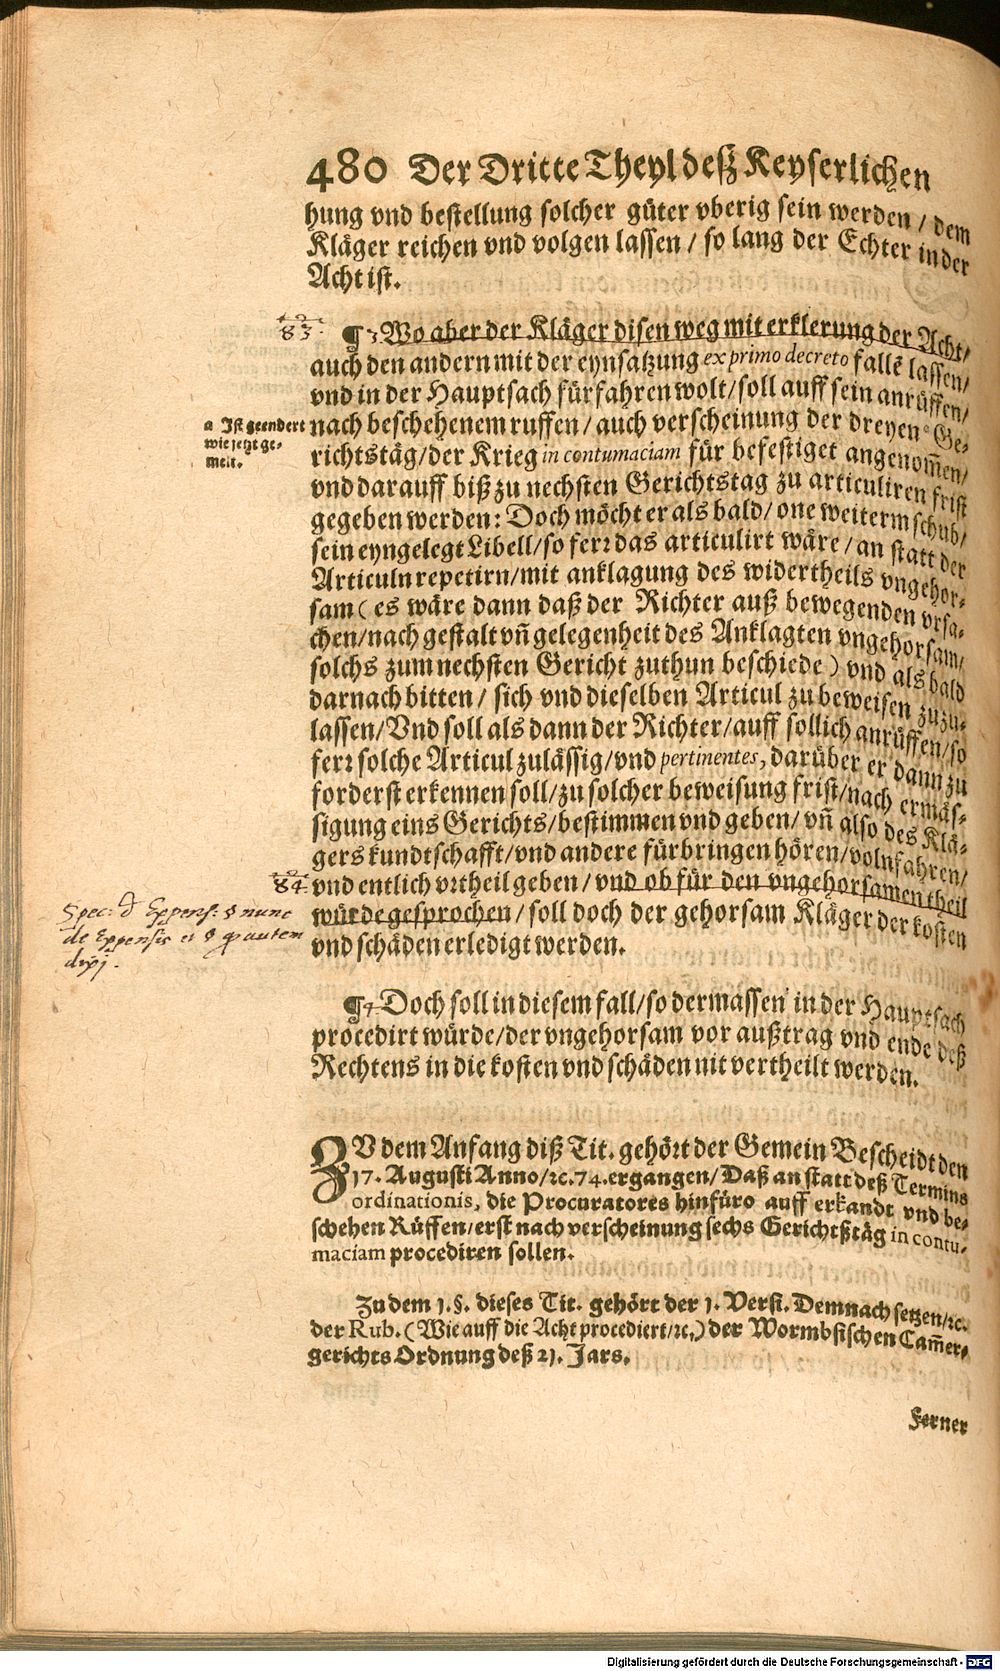 480 Der Dritte Theyl deß Keyserlichen
hung vnd bestellung solcher güter vberig sein werden / dem
Kläger reichen vnd volgen lassen / so lang der Echter in der
Acht ist.
83.
¶ 3 Wo aber der Kläger disen weg mit erklerung der Acht/
auch den andern mit der eynsatzung ex primo decreto fallē lassen/
vnd in der Hauptsach fürfahren wolt/ soll auff sein anrüffen/
a Ist geendert
wie jetzt ge-
melt.
nach beschehenem ruffen / auch verscheinung der dreyen a Ge-
richtstäg/ der Krieg in contumaciam für befestiget angenom̃en/
vnd darauff biß zu nechsten Gerichtstag zu articuliren frist
gegeben werden: Doch möcht er als bald/ one weiterm schub/
sein eyngelegt Libell/ so ferꝛ das articulirt wäre / an statt der
Articuln repetirn/ mit anklagung des widertheils vngehor-
sam ( es wäre dann daß der Richter auß bewegenden vrsa-
chen/ nach gestalt vñ gelegenheit des Anklagten vngehorsam/
solchs zum nechsten Gericht zuthun beschiede ) vnd als bald
darnach bitten / sich vnd dieselben Articul zu beweisen zuzu-
lassen/ Vnd soll als dann der Richter/ auff sollich anrüffen/ so
ferꝛ solche Articul zulässig/ vnd pertinentes, darüber er dann zu
forderst erkennen soll/ zu solcher beweisung frist/ nach ermäs-
sigung eins Gerichts/ bestimmen vnd geben/ vñ also des Klä-
gers kundtschafft/ vnd andere fürbringen hören/ volnfahren/
84.
vnd entlich vrtheil geben/ vnd ob für den vngehorsamen theil
würde gesprochen/ soll doch der gehorsam Kläger der kosten
vnd schäden erledigt werden.
Spec: d Expens: § nunc
de Expensis et § autem
dixj.
¶ 4 Doch soll in diesem fall/ so dermassen in der Hauptsach
procedirt würde/ der vngehorsam vor außtrag vnd ende deß
Rechtens in die kosten vnd schäden nit vertheilt werden.
ZV dem Anfang diß Tit. gehört der Gemein Bescheidt den
17. Augusti Anno/ ꝛc. 74. ergangen/ Daß an statt deß Termins
ordinationis, die Procuratores hinfüro auff erkandt vnd be-
schehen Rüffen/ erst nach verscheinung sechs Gerichtßtäg in contu-
maciam procediren sollen.
Zu dem 1. §. dieses Tit. gehört der 1. Versi. Demnach setzen/ ꝛc.
der Rub. ( Wie auff die Acht procediert/ ꝛc.) der Wormbsischen Cam̃er-
gerichts Ordnung deß 21. Jars.
Ferner
Digitalisierung gefördert durch die Deutsche Forschungsgemeinschaft - DFG